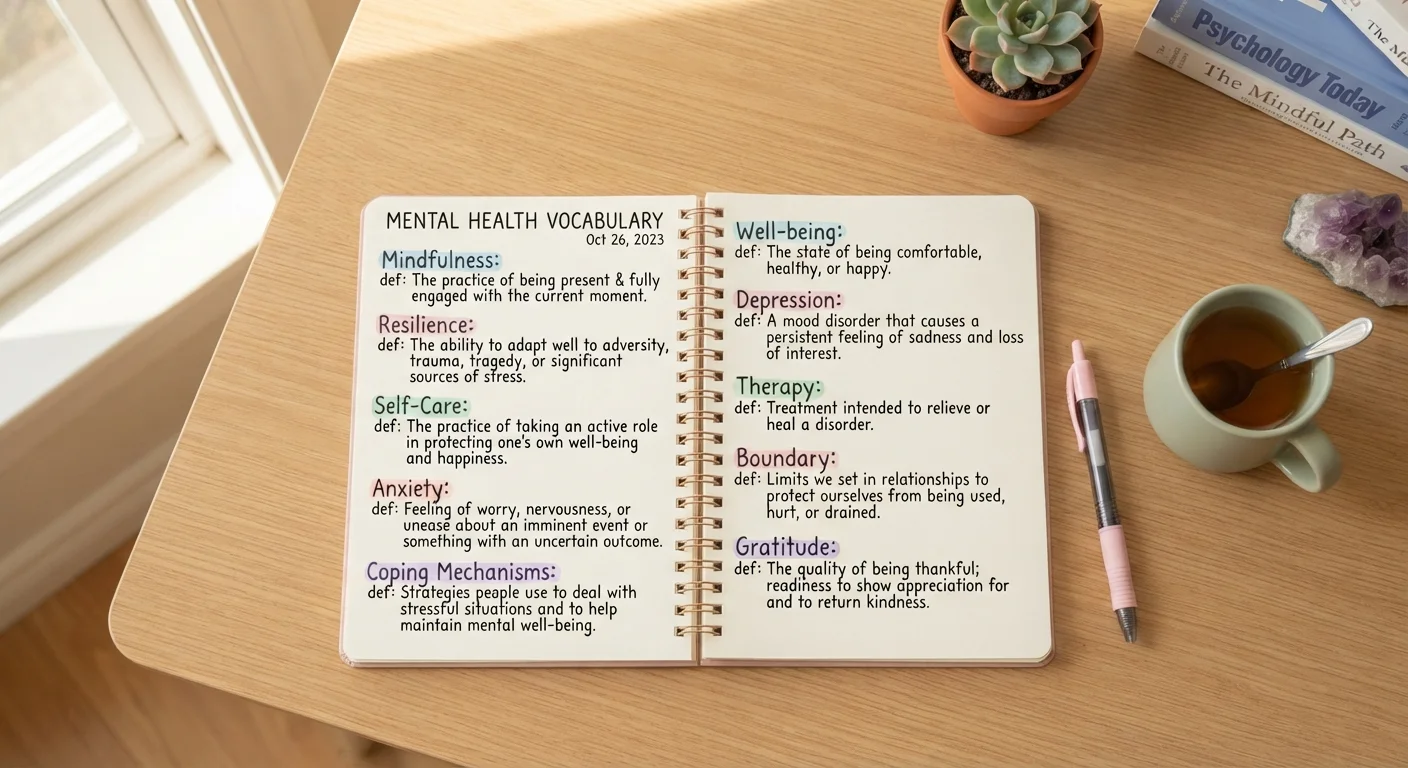 MENTAL HEALTH VOCABULARY
Oct 26, 2023
Mindfulness:
def: The practice of being present & fully
engaged with the current moment.
Resilience:
def: The ability to adapt well to adversity,
trauma, tragedy, or significant
sources of stress.
Self-Care:
def: The practice of taking an active role
in protecting one's own well-being
and happiness.
Anxiety:
def: Feeling of worry, nervousness, or
unease about an imminent event or
something with an uncertain outcome.
Coping Mechanisms:
def: Strategies people use to deal with
stressful situations and to help
maintain mental well-being.
Well-being:
def: The state of being comfortable,
healthy, or happy.
Depression:
def: A mood disorder that causes a
persistent feeling of sadness and loss
of interest.
Therapy:
def: Treatment intended to relieve or
heal a disorder.
Boundary:
def: Limits we set in relationships to
protect ourselves from being used,
hurt, or drained.
Gratitude:
def: The quality of being thankful;
readiness to show appreciation for
and to return kindness.
Psychology Today
The Mindful Path
The